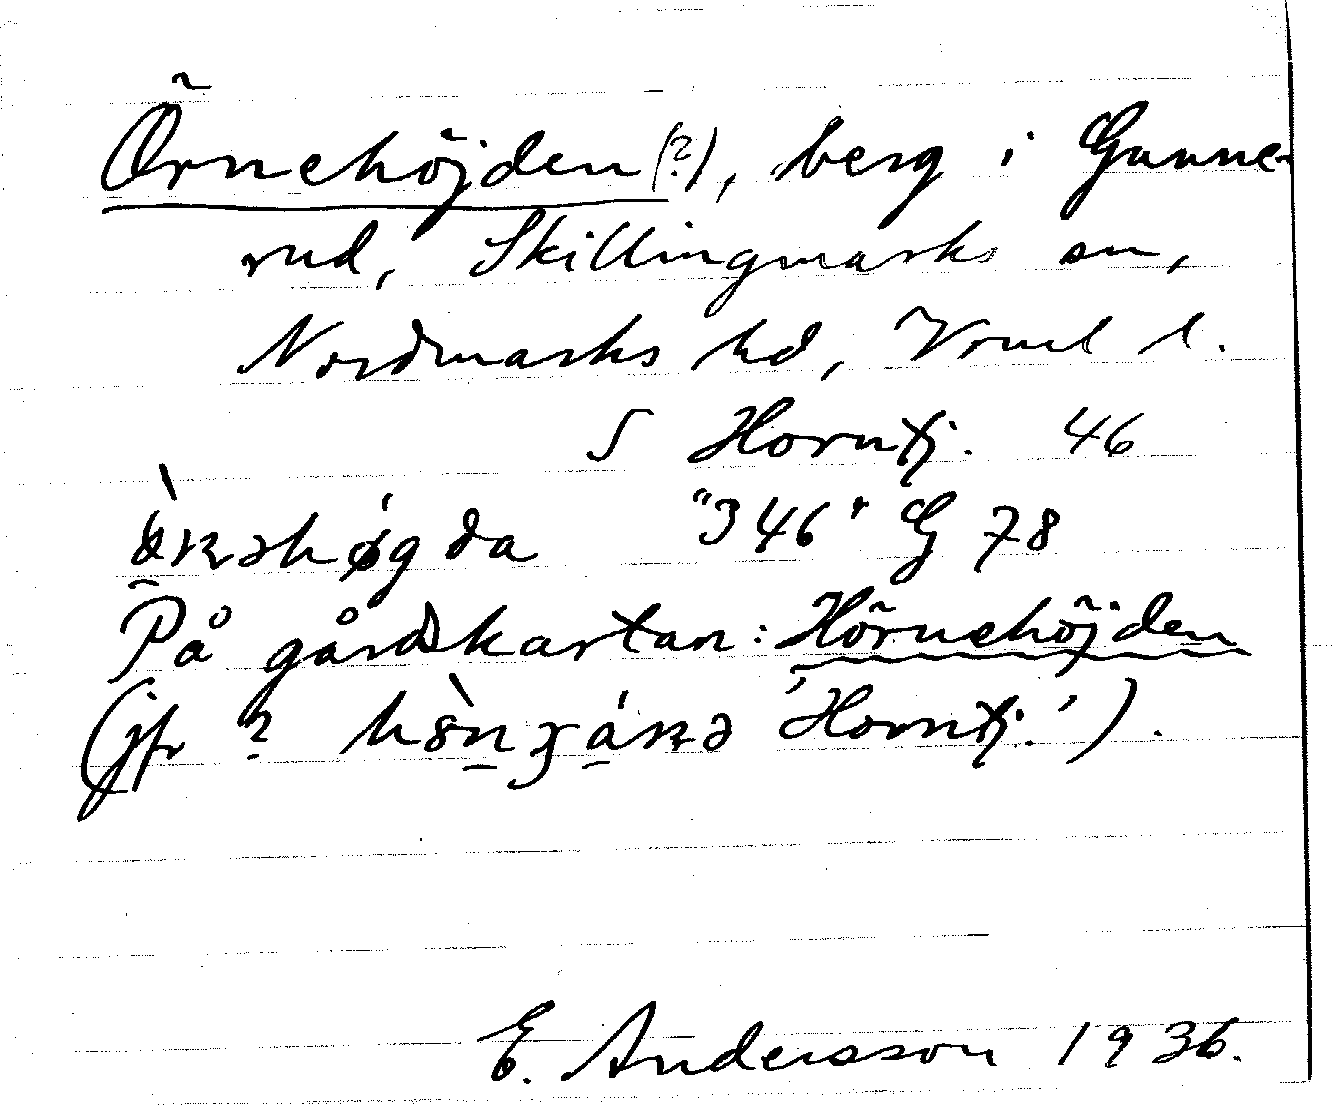 Örnehöjden (?), berg i Gunne-
rud, Skillingmarks sn,
Nordmarks hd, Vrml l.
S Horntj. 46
"346" G 78
På gårdskartan: Hörnehöjden
(jfr ? 'Horntj.').
E. Andersson 1936.